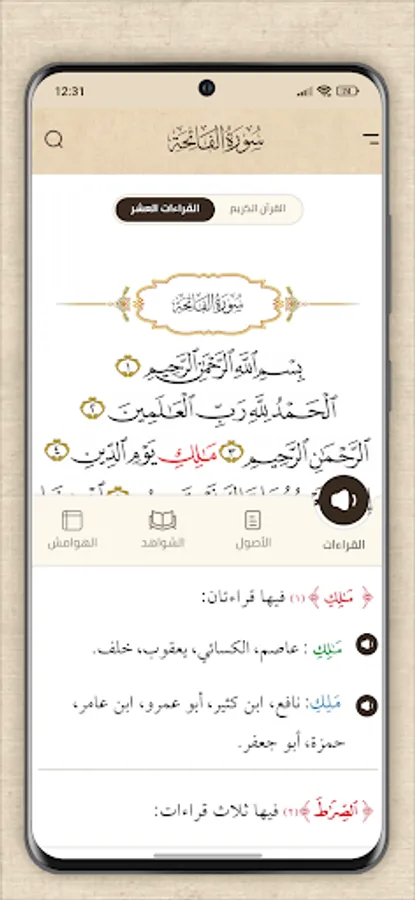 12:31
سُورَةُ الفَاتِحَةِ
القرآن الكريم
القراءات العشر
سُورَةُ الفَاتِحَةِ
بِسْمِ ٱللَّهِ ٱلرَّحْمَٰنِ ٱلرَّحِيمِ ١
ٱلْحَمْدُ لِلَّهِ رَبِّ ٱلْعَٰلَمِينَ ٢
ٱلرَّحْمَٰنِ ٱلرَّحِيمِ ٣ مَٰلِكِ يَوْمِ ٱلدِّينِ ٤
القراءات
الأصول
الشواهد
الهوامش
﴿ مَٰلِكِ ﴾ (١) فيها قراءتان:
مَٰلِكِ : عاصم، الكسائي، يعقوب، خلف.
مَلِكِ: نافع، ابن كثير، أبو عمرو، ابن عامر،
حمزة، أبو جعفر.
﴿ ٱلصِّرَٰطَ ﴾ (٢) فيها ثلاث قراءات: